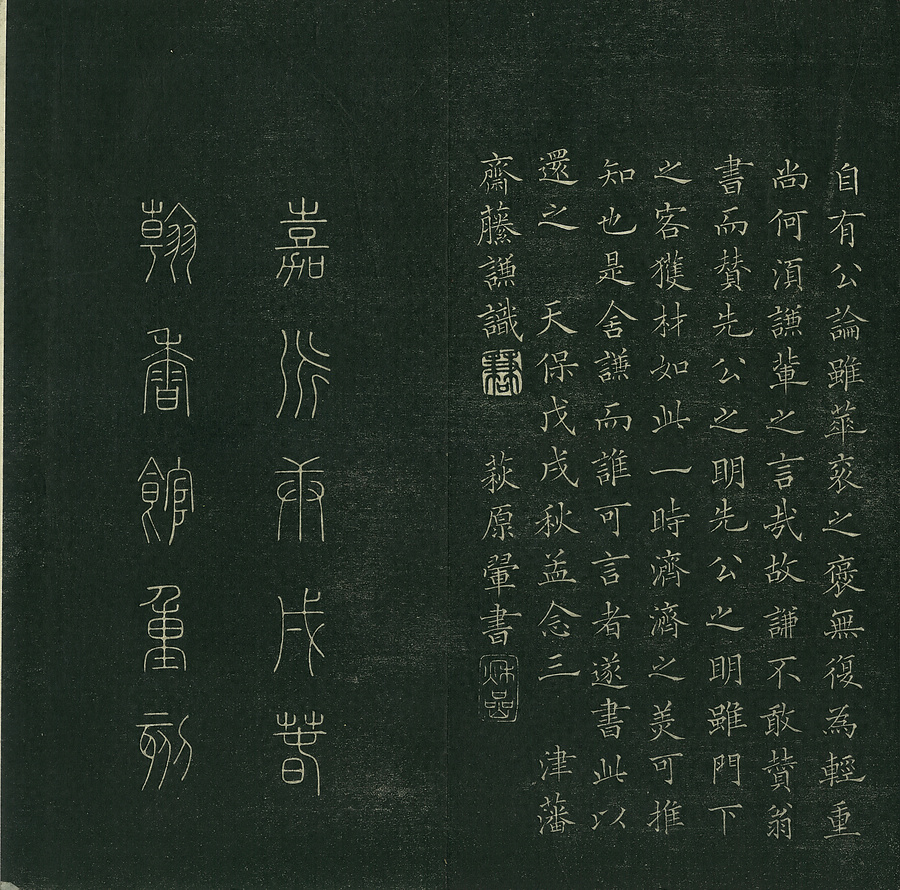 自有公論雖華袞之褒無復為輕重
尚何須謙輩之言哉故謙不敢贊翁
書而贊先公之明先公之明雖門下
之客獲材如此一時濟濟之美可推
知也是舍謙而誰可言者遂書此以
還之 天保戊戌秋孟念三 津藩
齋藤謙識 萩原翬書
嘉永庚戌春
翰香館重刻